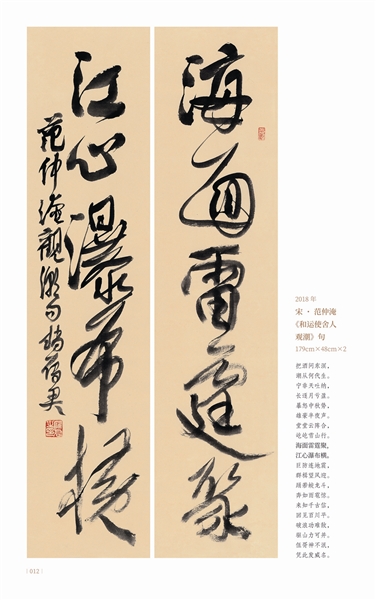 海面雷霆聚
江心瀑布橫
范仲淹觀潮句
2018 年
宋 · 范仲淹
《和运使舍人
观潮》句
179cm×48cm×2
把酒问东溟，
潮从何代生。
宁非天吐纳，
长逐月亏盈。
暴怒中秋势，
雄豪半夜声。
堂堂云阵合，
屹屹雪山行。
海面雷霆聚，
江心瀑布横。
巨防连地震，
群楫望风迎。
踊若蛟龙斗，
奔如雨雹惊。
来知千古信，
回见百川平。
破浪功难敌，
驱山力可并。
伍胥神不泯，
凭此发威名。
| 012 |